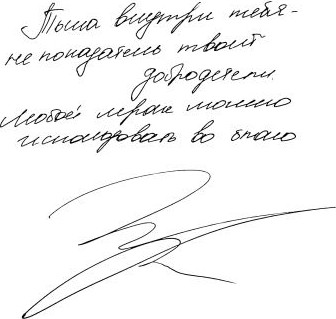 Тьма внутри тебя -
не показатель твоей
добродетели.
Любой мрак можно
использовать во благо